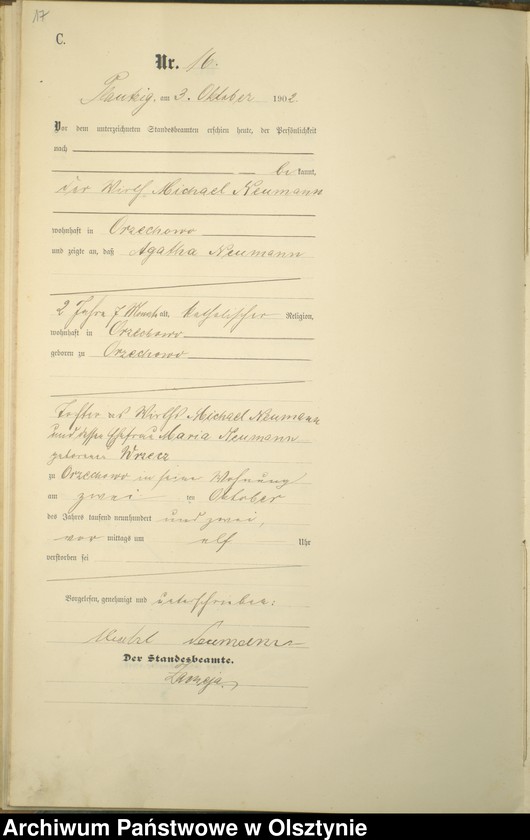 17
C.
Nr. 16.
Plautzig, am 3. Oktober 1902.
Vor dem unterzeichneten Standesbeamten erschien heute, der Persönlichkeit
nach
be kannt,
der Wirth Michael Neumann
wohnhaft in Orzechowo
und zeigte an, daß Agatha Neumann
2 Jahre 7 Monate alt, katholischer Religion,
wohnhaft in Orzechowo
geboren zu Orzechowo
Tochter des Wirths Michael Neumann
und dessen Ehefrau Maria Neumann
geborene Wrzecz
zu Orzechowo in seiner Wohnung
am zwei ten Oktober
des Jahres tausend neunhundert und zwei,
vor mittags um elf Uhr
verstorben sei
Vorgelesen, genehmigt und unterschrieben:
Neumann
Der Standesbeamte.
Archiwum Państwowe w Olsztynie